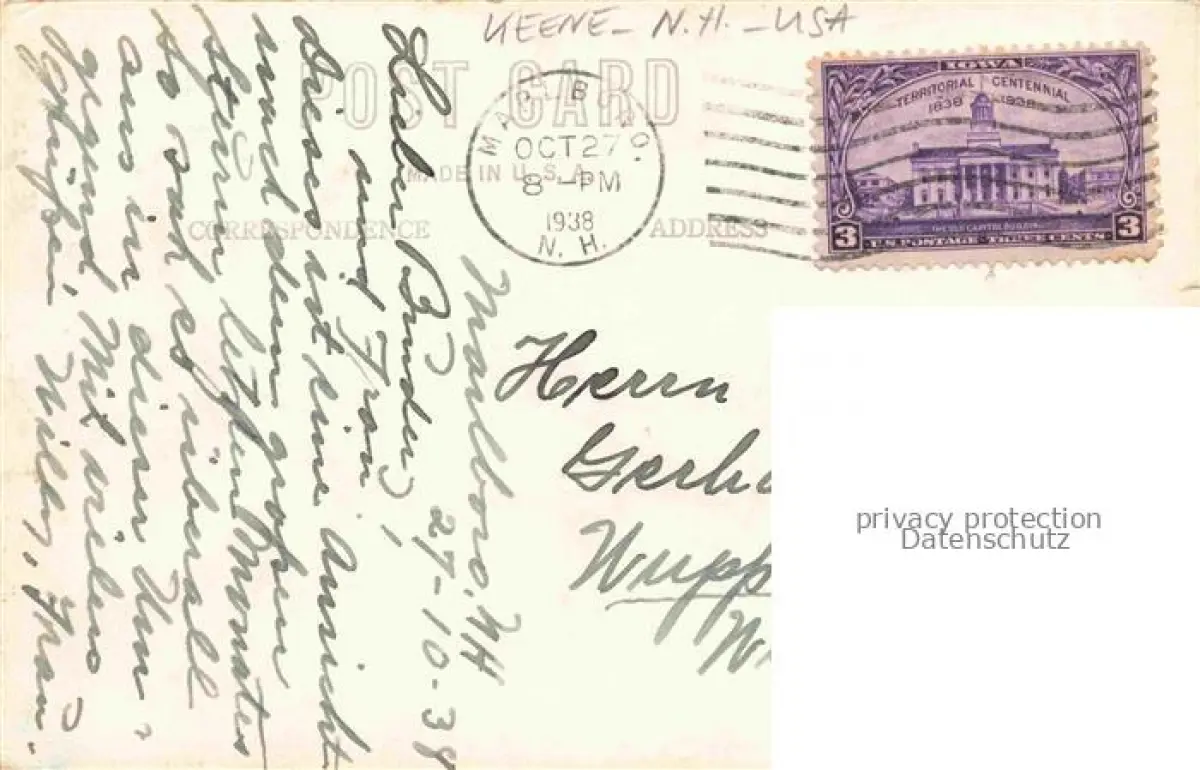 KEENE - N.H. - USA
POST CARD
MADE IN U.S.A.
CORRESPONDENCE
ADDRESS
MARLBORO.
OCT 27
8 - PM
1938
N. H.
IOWA
TERRITORIAL CENTENNIAL
1838 1938
THE OLD CAPITOL BUILDING
3 U.S. POSTAGE THREE CENTS 3
Marlboro. NH
27-10-38
Lieber Bruder,
und Frau
Dieses ist eine Ansicht
nach dem großen
Sturm letzten Monates
So sah es überall
aus in dieser Um-
gegend Mit vielen
Grüßen Willy, Frau.
Herrn
Gerha
Wupp
W
privacy protection
Datenschutz